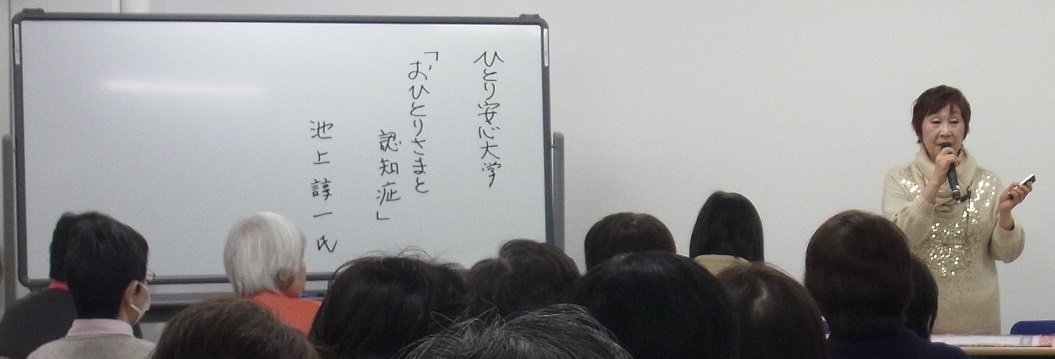 ひとり安心大学
「おひとりさまと
認知症」
池上諄一氏